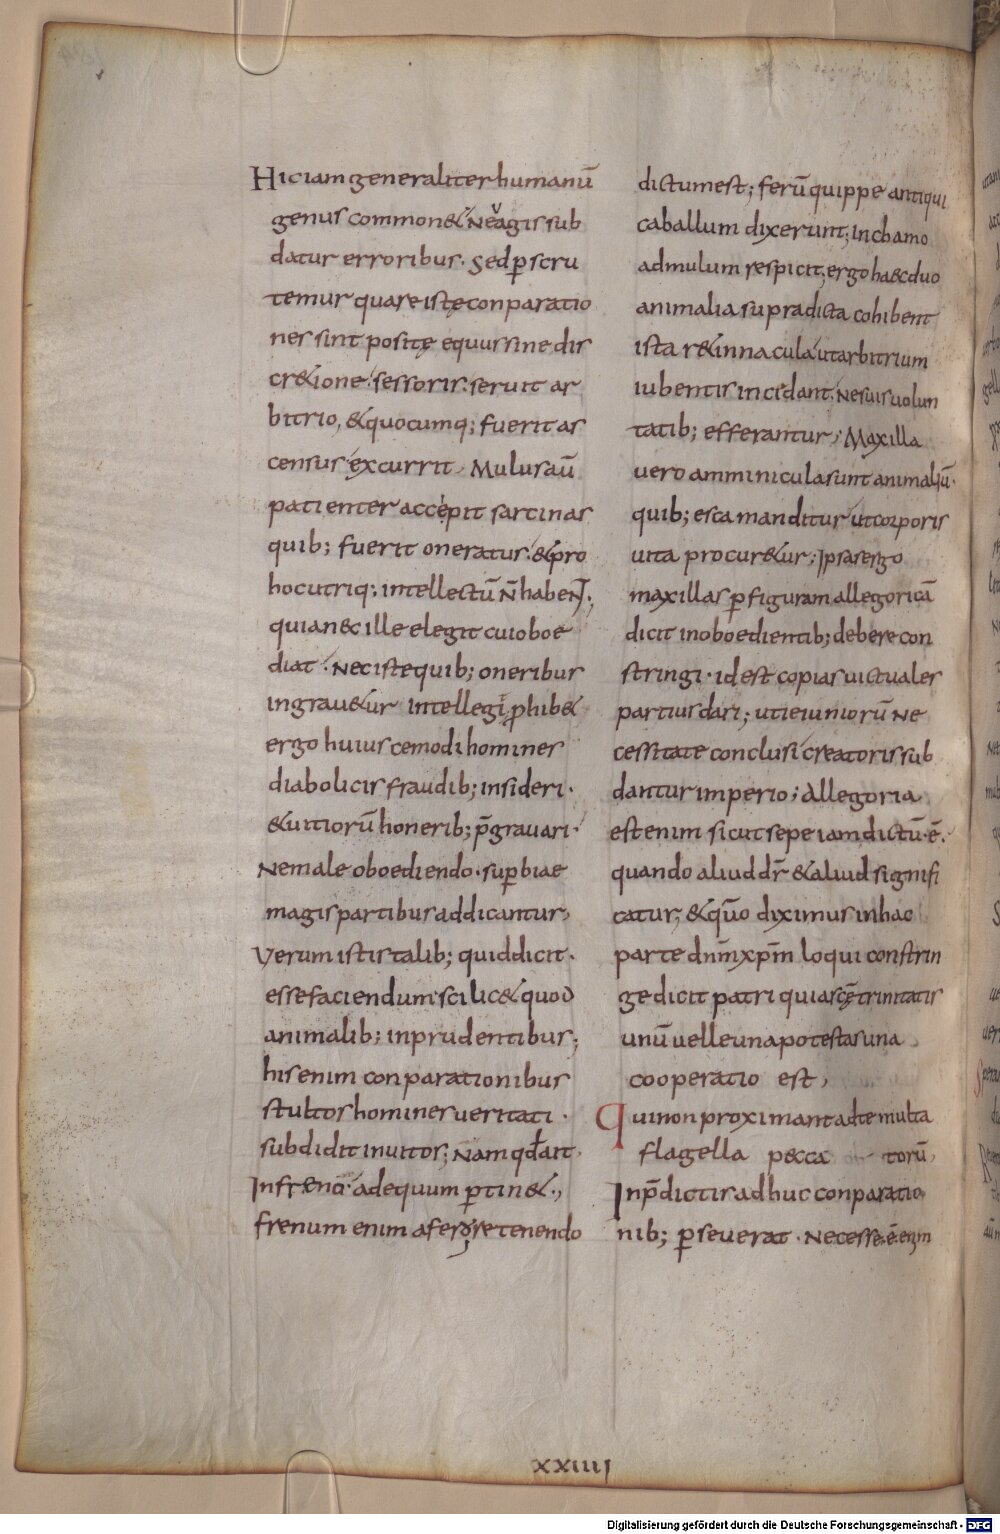 Hiciam generaliter humanū
genus common& Ne vagis sub
datur erroribus. Sed p̲scru
temur quare istę conparatio
nes sint positę equus sine dis
cr&ione sessoris. seruit ar
bitrio, & quocumq; fuerit as
census excurrit. Mulus aū
patienter accepit sarcinas
quib; fuerit oneratus. & pro
hoc utriq; intellectū n̄ habent;
quia nec ille elegit cui oboe
diat. Nec iste quib; oneribus
ingrau&ur intellegi p̲hib&
ergo huiuscemodi homines
diabolicis fraudib; insideri.
& uitiorū honerib; p̄grauari.
Ne male oboediendo. sup̲biae
magis partibus addicantur,
Verum istis talib; quid dicit.
esse faciendum scilic& quod
animalib; inprudentibus;
his enim conparationibus
stultos homines ueritati.
subdidit inuitos; Nam qđ ait.
In freno adequum p̲tin&.,
frenum enim a fero retenendo
dictum est; ferū quippe antiqui
caballum dixerunt; in chamo
ad mulum respicit, ergo haec duo
animalia supradicta cohibent
ista r&innacula ut arbitrium
iubentis incedant. Ne suis uolun
tatib; efferantur; Maxilla
uero amminicula sunt animaliū.
quib; esca manditur ut corporis
uita procur&ur; Ipsas ergo
maxillas p̲ figuram allegoricā
dicit inoboedientib; debere con
stringi. id est copias uictuales
partius dari; uti eiuniorū Ne
cessitate conclusi creatoris sub
dantur imperio; Allegoria
est enim sicut sepe iam dictū ē.
quando aliud dr̄ & aliud signifi
catur, & quō diximus in hac
parte dnm̄ xp̄m loqui constrin
ge dicit patri quia scę trinitatis
unū uelle una potestas una
cooperatio est,
Qui non proximant ad te multa
flagella pecca torū,
In p̄dictis adhuc conparatio
nib; p̲seuerat. Necesse ē enim
XXIIII
Digitalisierung gefördert durch die Deutsche Forschungsgemeinschaft - DFG